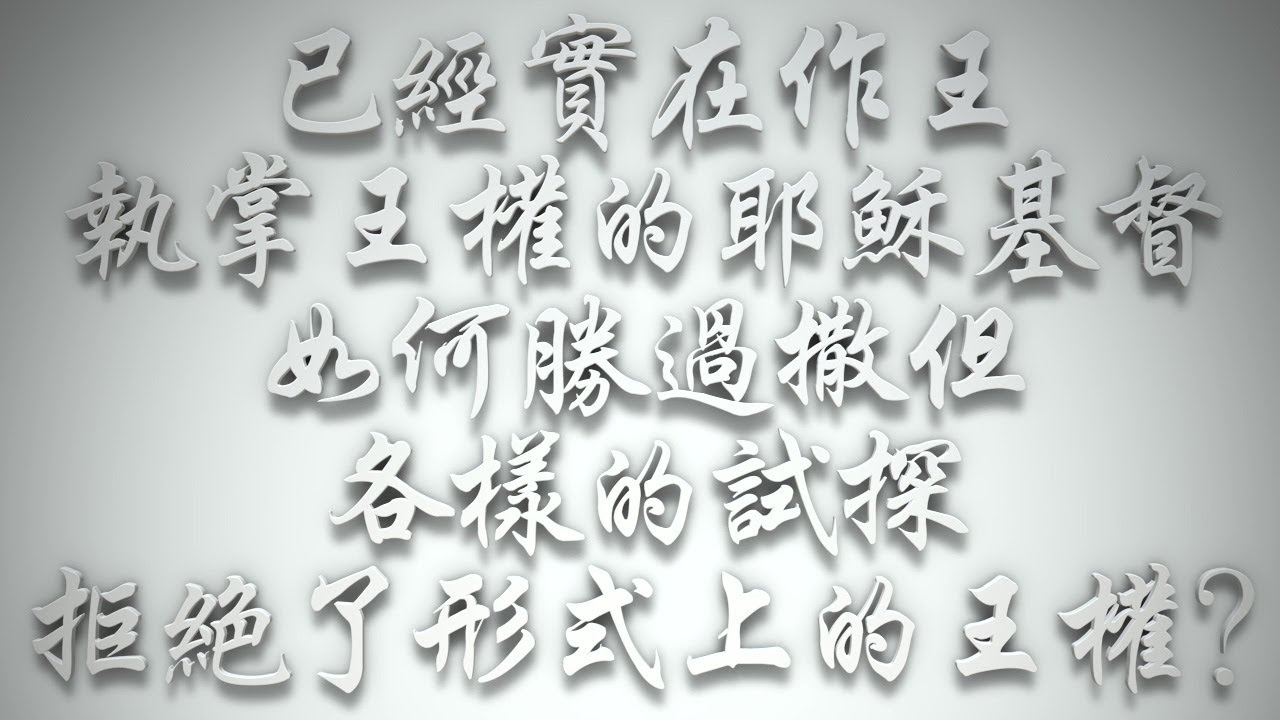 已經實在作王
執掌王權的耶穌基督
如何勝過撒但
各樣的試探
拒絕了形式上的王權?